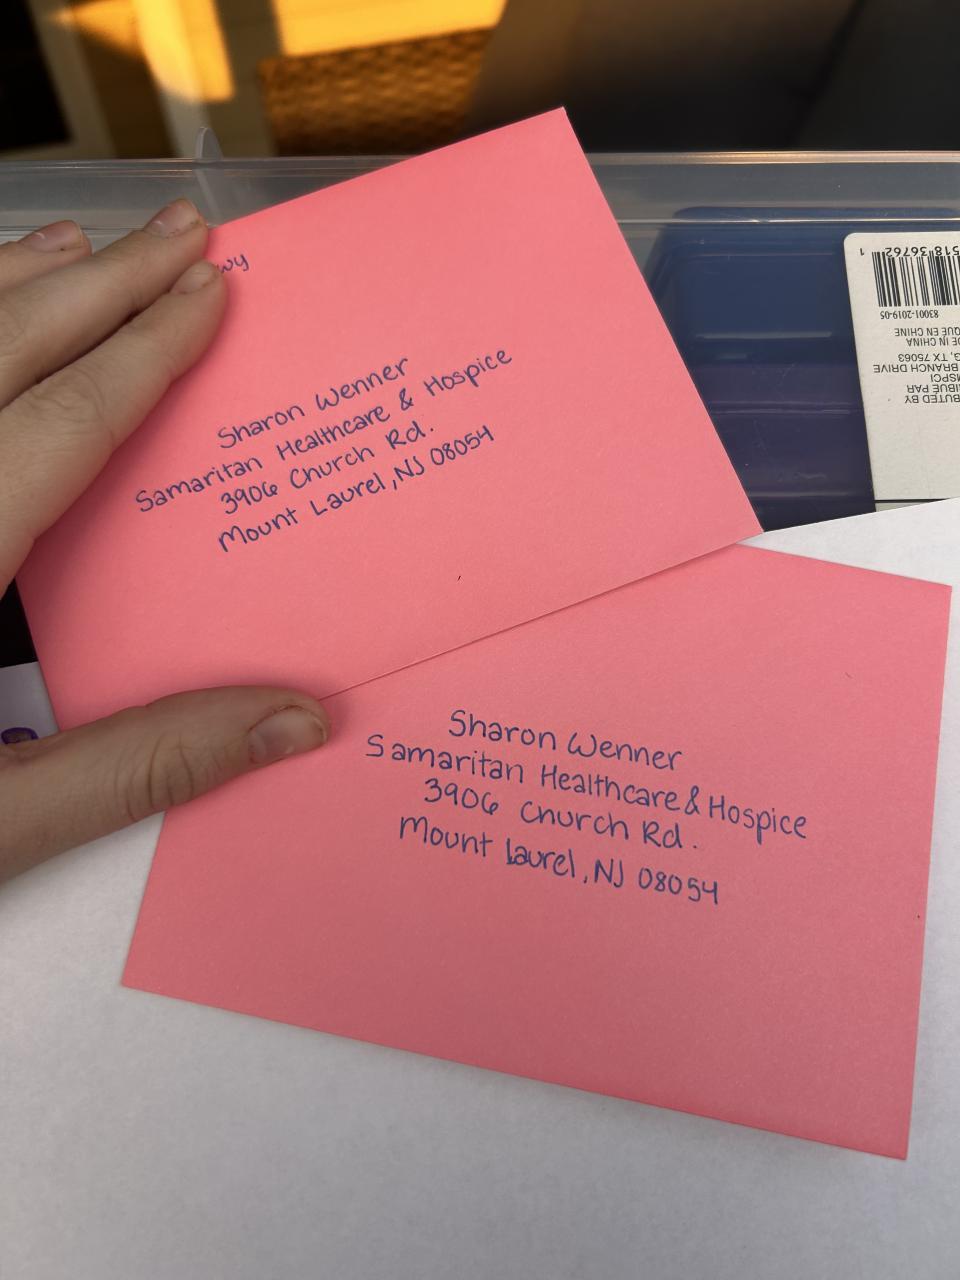 wy
Sharon Wenner
Samaritan Healthcare & Hospice
3906 Church Rd.
Mount Laurel, NJ 08054
Sharon Wenner
Samaritan Healthcare & Hospice
3906 Church Rd.
Mount Laurel, NJ 08054
518 36762 1
83001-2019-05
QUE EN CHINE
DE IN CHINA
G, TX 75063
BRANCH DRIVE
MSPCI
IBUÉ PAR
BUTED BY